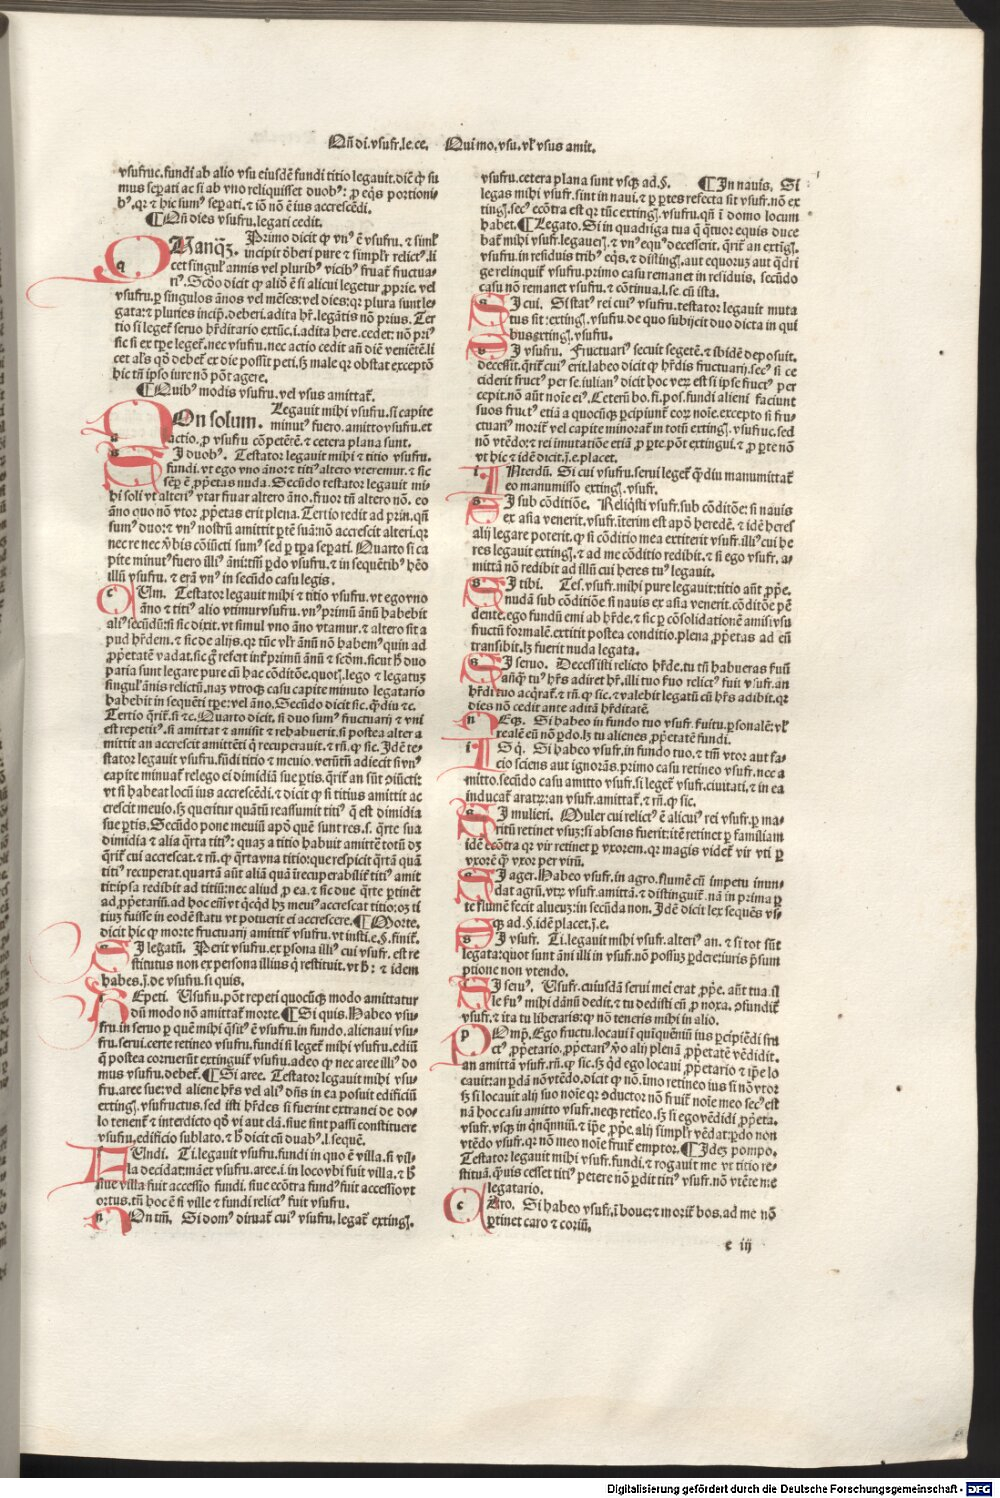 Qñ di.vsufr.le.ce. Qui mo.vsu.vł vsus amit.
vsufruc.fundi ab alio vsu eiusdē fundi titio legauit.diē ꝙ su
mus sepati ac si ab vno reliquisset duobꝰ: ꝓ eqs portioni
bꝰ.qꝛ & hic sumꝰ sepati.& iō nō ē ius accrescēdi.
¶Qñ dies vsufru.legati cedit.
Primo dicit ꝙ vnꝰ ē vsufru. & simł
Nanqꝫ. incipit ōberi pure & simplr relictꝰ.li
cet singul' annis vel pluribꝰ vicibꝰ fruat̄ fructua-
riꝰ. Scōo dicit ꝙ aliō ē si alicui legetur ꝓprie. vel
vsufru.ꝑ singulos ānos vel mēses: vel dies: qꝛ plura sunt le-
gata: & pluries incip̄.deberi.adita hr̄.legātis nō prius. Ter
tio si leget̄ seruo hr̄ditario extūc.i.adita here.cedet: nō priꝰ
sic si ex tp̄e leget̄.nec vsufru.nec actio cedit añ diē veniētē.li
cet al's qō debet̄ ex die possit peti.sꝫ male qꝛ obstat exceptō
hic tñ ipso iure nō pōt agere.
¶Quibꝰ modis vsufru.vel vsus amittat̄.
Legauit mihi vsufru.si capite
On solum. minutꝰ fuero.amitto vsufru.et
actio.ꝓ vsufru cōpetētē.& cetera plana sunt.
s I duobꝰ. Testator legauit mihi & titio vsufru.
fundi.vt ego vno āno: & titꝰ altero vteremur.& sic
sep̄ ē ꝓp̄etas nuda. Secūdo testator legauit mi-
hi soli vt alteriꝰ vtar fruar altero āno.fruor tñ altero nō. eo
āno quo nō vtor ꝓp̄etas erit plena. Tertio redit ad prin.qñ
sumꝰ duo: & vnꝰ nostrū amittit ꝑtē suā: nō accrescit alteri.qꝛ
nec re nec v̄bis cōiūcti sumꝰ sed ꝑ tp̄a sepati. Quarto si ca
pite minutꝰ fuero illiꝰ āni: tñ ꝑdo vsufru.& in sequētibꝰ hēo
illū vsufru. & erā vnꝰ in secūdo casu legis.
c Um. Testator legauit mihi & titio vsufru. vt ego vno
āno & titꝰ alio vtimur vsufru. vnꝰ primū ānū habebit
aliꝰ secūdū: si sic dixit. vt simul vno āno vtamur. & altero sit a
pud hr̄dem. & sic de alijs.qꝛ tūc vlr ānū nō habem ꝰ quin ad
ꝓp̄etatē vadat.sic gͦ refert int̄ primū ānū & scōm.sicut hͦ duo
paria sunt legare pure cū hac cōditōe.quotꝭ.lego & legatuꝫ
singulꝰ ānis relictū.naꝫ vtroqꝫ casu capite minuto legatario
habebit in sequēti tp̄e: vel āno. Secūdo dicit sic.ꝙdiu &c.
Tertio qr̄it̄.si &c. Quarto dicit. si duo sumꝰ fructuarij & vni
est repetitꝰ.si amittat & amisit̄ & rehabuerit.si postea alter a
mittit an accrescit amittēti q̄ recuperauit.& rñ.ꝙ sic. Idē te-
stator legauit vsufru.fūdi titio & meuio.verūtñ adiecit si vnꝰ
capite minuat̄ relego ei dimidiā sue ꝑtis.qr̄it̄ an sūt ↄiūcti:
vt si habeat locū ius accrescēdi.& dicit ꝙ si titius amittit ac
crescit meuio.sꝫ queritur quātū reassumit titiꝰ q̄ est dimidia
sue ꝑtis. Secūdo pone meuiū apō quē sunt res.s. q̄rte sua
dimidia & alia q̄rta titiꝰ: quaꝫ a titio habuit amittē totū dꝫ
q̄rit̄ cui accrescat.& rñ.ꝙ q̄rta vna titio: que respicit q̄rtā quā
titiꝰ recuperat.quartā aūt aliā quā irecuperabilit̄ titiꝰ amit
tit: ipsa redibit ad titiū: nec aliud ꝓ ea.& sic due q̄rte ꝑtinēt
ad ꝓp̄etariū.ad hoc em̄ vt qͨqd hꝫ meuiꝰ accrescat titio: oꝫ ti
tiuꝫ fuisse in eodē statu vt potuerit ei accrescere. ¶Morte.
dicit hic ꝙ morte fructuarij amittit̄ vsufru.vt insti.e.§.finit̄.
s I legatū. Perit vsufru.ex ꝑsona illiꝰ cui vsufr.est re
stitutus non ex persona illius q̄ restituit.vt hͦ: & idem
habes.j.de vsufru.si quis.
r Epeti. Usufru.pōt repeti quocūqꝫ modo amittatur
dū modo nō amittat̄ morte. ¶Si quis. Habeo vsu-
fru.in seruo ꝑ quē mihi q̄sitꝰ ē vsufru.in fundo.alienaui vsu-
fru.serui.certe retineo vsufru.fundi si leget̄ mihi vsufru.ediū
q̄ postea corruerūt extinguit̄ vsufru.adeo ꝙ nec aree illiꝰ do
mus vsufru.debet̄. ¶Si aree. Testator legauit mihi vsu-
fru.aree sue: vel aliene hr̄s vel aliꝰ dñs in ea posuit edificiū
extingꝭ.vsufructus.sed isti hr̄des si fuerint extranei de do-
lo tenent̄ & interdicto qō vi aut clā.siue sint passi constituere
vsufru.edificio sublato.& hͦ dicit cū duabꝰ.l.sequē.
f Undi. Ti.legauit vsufru.fundi in quo ē villa.si vil-
la decidat: māet vsufru.aree.i.in loco vbi fuit villa.& hͦ
siue villa fuit accessio fundi.siue ecōtra fundꝰ fuit accessio vt
ortus.tñ hoc ē si ville & fundi relictꝰ fuit vsufru.
n On tñ. Si domꝰ diruat̄ cuiꝰ vsufru.legat̄ extingꝭ.
vsufru.cetera plana sunt vsqꝫ ad.§. ¶In nauis. Si
legas mihi vsufr.sint in naui.& ꝑ ꝑtes refecta sit vsufr.nō ex
tingꝭ.secꝰ ecōtra est qꝛ tūc extingꝭ.vsufru.qñ i domo locum
habet. ¶Legato. Si in quadriga tua q̄ q̄tuor equis duce
bat̄ mihi vsufr.legauerꝭ.& vnꝰ equꝰ decesserit. q̄rit̄ an extīgꝭ.
vsufru.in residuis tribꝰ eqs.& distingꝭ.aut equoruꝫ aut q̄dri
ge relinquit̄ vsufru.primo casu remanet in residuis. secūdo
casu nō remanet vsufru.& cōtinua.l.se.cū ista.
s I cui. Si statꝰ rei cuiꝰ vsufru.testator legauit muta
tus sit: extingꝭ.vsufru.de quo subijcit duo dicta in qui
bus extingꝭ.vsufru.
s I vsufru. Fructuariꝰ secuit segetē.& ibidē deposuit.
decessit.q̄rit̄ cuiꝰ erit.labeo dicit ꝙ hr̄dis fructuarij.secꝰ si ce
ciderit fructꝰ per se.iulianꝰ dicit hoc veꝝ est si ipse fructꝰ per
cepit.nō aūt noīe eiꝰ. Ceterū bo.fi.pos.fundi alieni faciunt
suos fructꝰ etiā a quocūqꝫ ꝑcipiunt̄ eoꝝ noīe.excepto si fru-
ctuariꝰ morit̄ vel capite minorat̄ in totū extingꝭ.vsufruc.sed
nō vtēdo: & rei imutatiōe etiā ꝓ ꝑte.pōt extingui.& ꝓ ꝑte nō
vt hic & idē dicit.j.e.placet.
i Nterdū. Si cui vsufru.serui leget̄ ꝙdiu manumittat̄
eo manumisso extingꝭ.vsufr.
s I sub cōditiōe. Reliq̄sti vsufr.sub cōditiōe: si nauis
ex asia venerit.vsufr.iterim est apō heredē.& idē heres
alij legare poterit.ꝙ si cōditio mea extiterit vsufr.illiꝰ cui he
res legauit extingꝭ.& ad me cōditio redibit.& si ego vsufr.a-
mittā nō redibit ad illū cui heres tuꝰ legauit.
s I tibi. Tes.vsufr.mihi pure legauit: titio aūt ꝓpe.
nudā sub cōditiōe si nauis ex asia venerit.cōditōe pē
dente.ego fundū emi ab hr̄de.& sic ꝑ cōsolidationē amisi vsu
fructū formalē.extitit postea conditio.plena ꝓp̄etas ad eū
transibit.lꝫ fuerit nuda legata.
s I seruo. Decessisti relicto hr̄de.tu tñ habueras f̄uū
añq̄ tuꝰ hr̄s adiret hr̄.illi tuo f̄uo relictꝰ fuit vsufr.an
hr̄di tuo acq̄rat̄.& rñ.ꝙ sic.& valebit legatū cū hr̄s adibit.qꝛ
dies nō cedit ante aditā hr̄ditatē.
n Eqꝫ. Si habeo in fundo tuo vsufr.f̄uitu.ꝑsonalē: vł
realē eū nō ꝑdo.lꝫ tu alienes ꝓp̄etatē fundi.
i S q̄. Si habeo vsufr.in fundo tuo.& tñ vtor aut fa-
cio sciens aut ignorās.primo casu retineo vsufr.nec a
mitto.secūdo casu amitto vsufr.si leget̄ vsufr.ciuitati.& in ea
inducat̄ aratꝝ: an vsufr.amittat̄.& rñ.ꝙ sic.
s I mulieri. Muler cui relictꝰ ē alicuiꝰ rei vsufr.ꝑ ma-
ritū retinet vsuꝫ: si absens fuerit: itē retinet ꝑ familiam
idē ecōtra qꝛ vir retinet ꝑ vxorem.qꝛ magis videt̄ vir vti ꝑ
vxorē ꝙ vxor per virū.
s I ager. Habeo vsufr.in agro.flumē cū impetu inun-
dat agrū.vtꝝ vsufr.amittā.& distinguit̄ nā in prima ꝑ
te flumē fecit alueuꝫ: in secūda non. Idē dicit lex sequēs vs
qꝫ ad.§.idē placet.j.e.
s I vsufr. Ti.legauit mihi vsufr.alteriꝰ an.& si tot sūt
legata: quot sunt āni illi in vsufr.nō possuꝫ ꝑdere: iuris p̄sum
ptione non vtendo.
s I seruꝰ. Usufr.cuiusdā serui mei erat ꝓpe.aūt tua.il
le f̄uꝰ mihi dānū dedit.& tu dedisti eū ꝓ noxa.ↄfundit̄
vsufr.& ita tu liberaris: qꝛ nō teneris mihi in alio.
p Omp̄. Ego fructu.locaui i quiquēniū ius ꝑcipiēdi fru
ctꝰ ꝓp̄etario.ꝓp̄etariꝰ v̄o alij plenā ꝓp̄etatē vēdidit.
an amittā vsufr.rñ.ꝙ sic.sꝫ qd ego locaui ꝓp̄etario & ip̄e lo
cauit: an ꝑdā nō vtēdo.dicit ꝙ nō.imo retineo ius si nō vtor
sꝫ si locauit alij suo noīe qꝛ ↄductor nō fruit̄ noīe meo secꝰ est
nā hoc casu amitto vsufr.neqꝫ retieo.sꝫ si ego vēdidi ꝓp̄eta.
vsufr.vsqꝫ in q̄nq̄nniū.& ip̄e ꝓpe.alij simplr vēdat: ꝑdo non
vtēdo vsufr.qꝛ nō meo noīe fruit̄ emptor. ¶Ideꝫ pompo.
Testator legauit mihi vsufr.fundi.& rogauit me vt titio re-
stituā.ꝙuis cesset titiꝰ petere nō ꝑdit titiꝰ vsufr.nō vtēte me
legatario.
c Aro. Si habeo vsufr.i boue: & morit̄ bos.ad me nō
ꝑtinet caro & coriū.
c iij
Digitalisierung gefördert durch die Deutsche Forschungsgemeinschaft - DFG